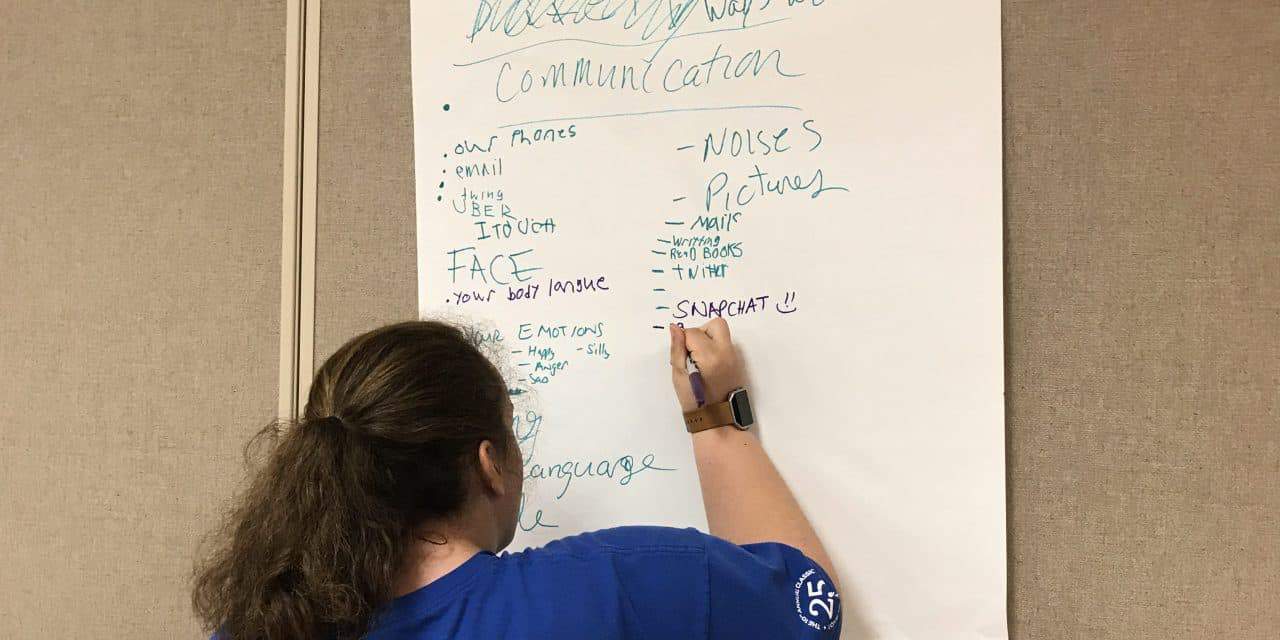 Ways
Communication
• our Phones
• email
• twing
BER
ITOUCH
FACE
• your body langue
EMOTIONS
- Happy - Silly
- Anger
- Sad
language
- NOISES
- Pictures
- Mail
- Writting
- READ BOOKS
- tWitter
-
- SNAPCHAT !!
-
25